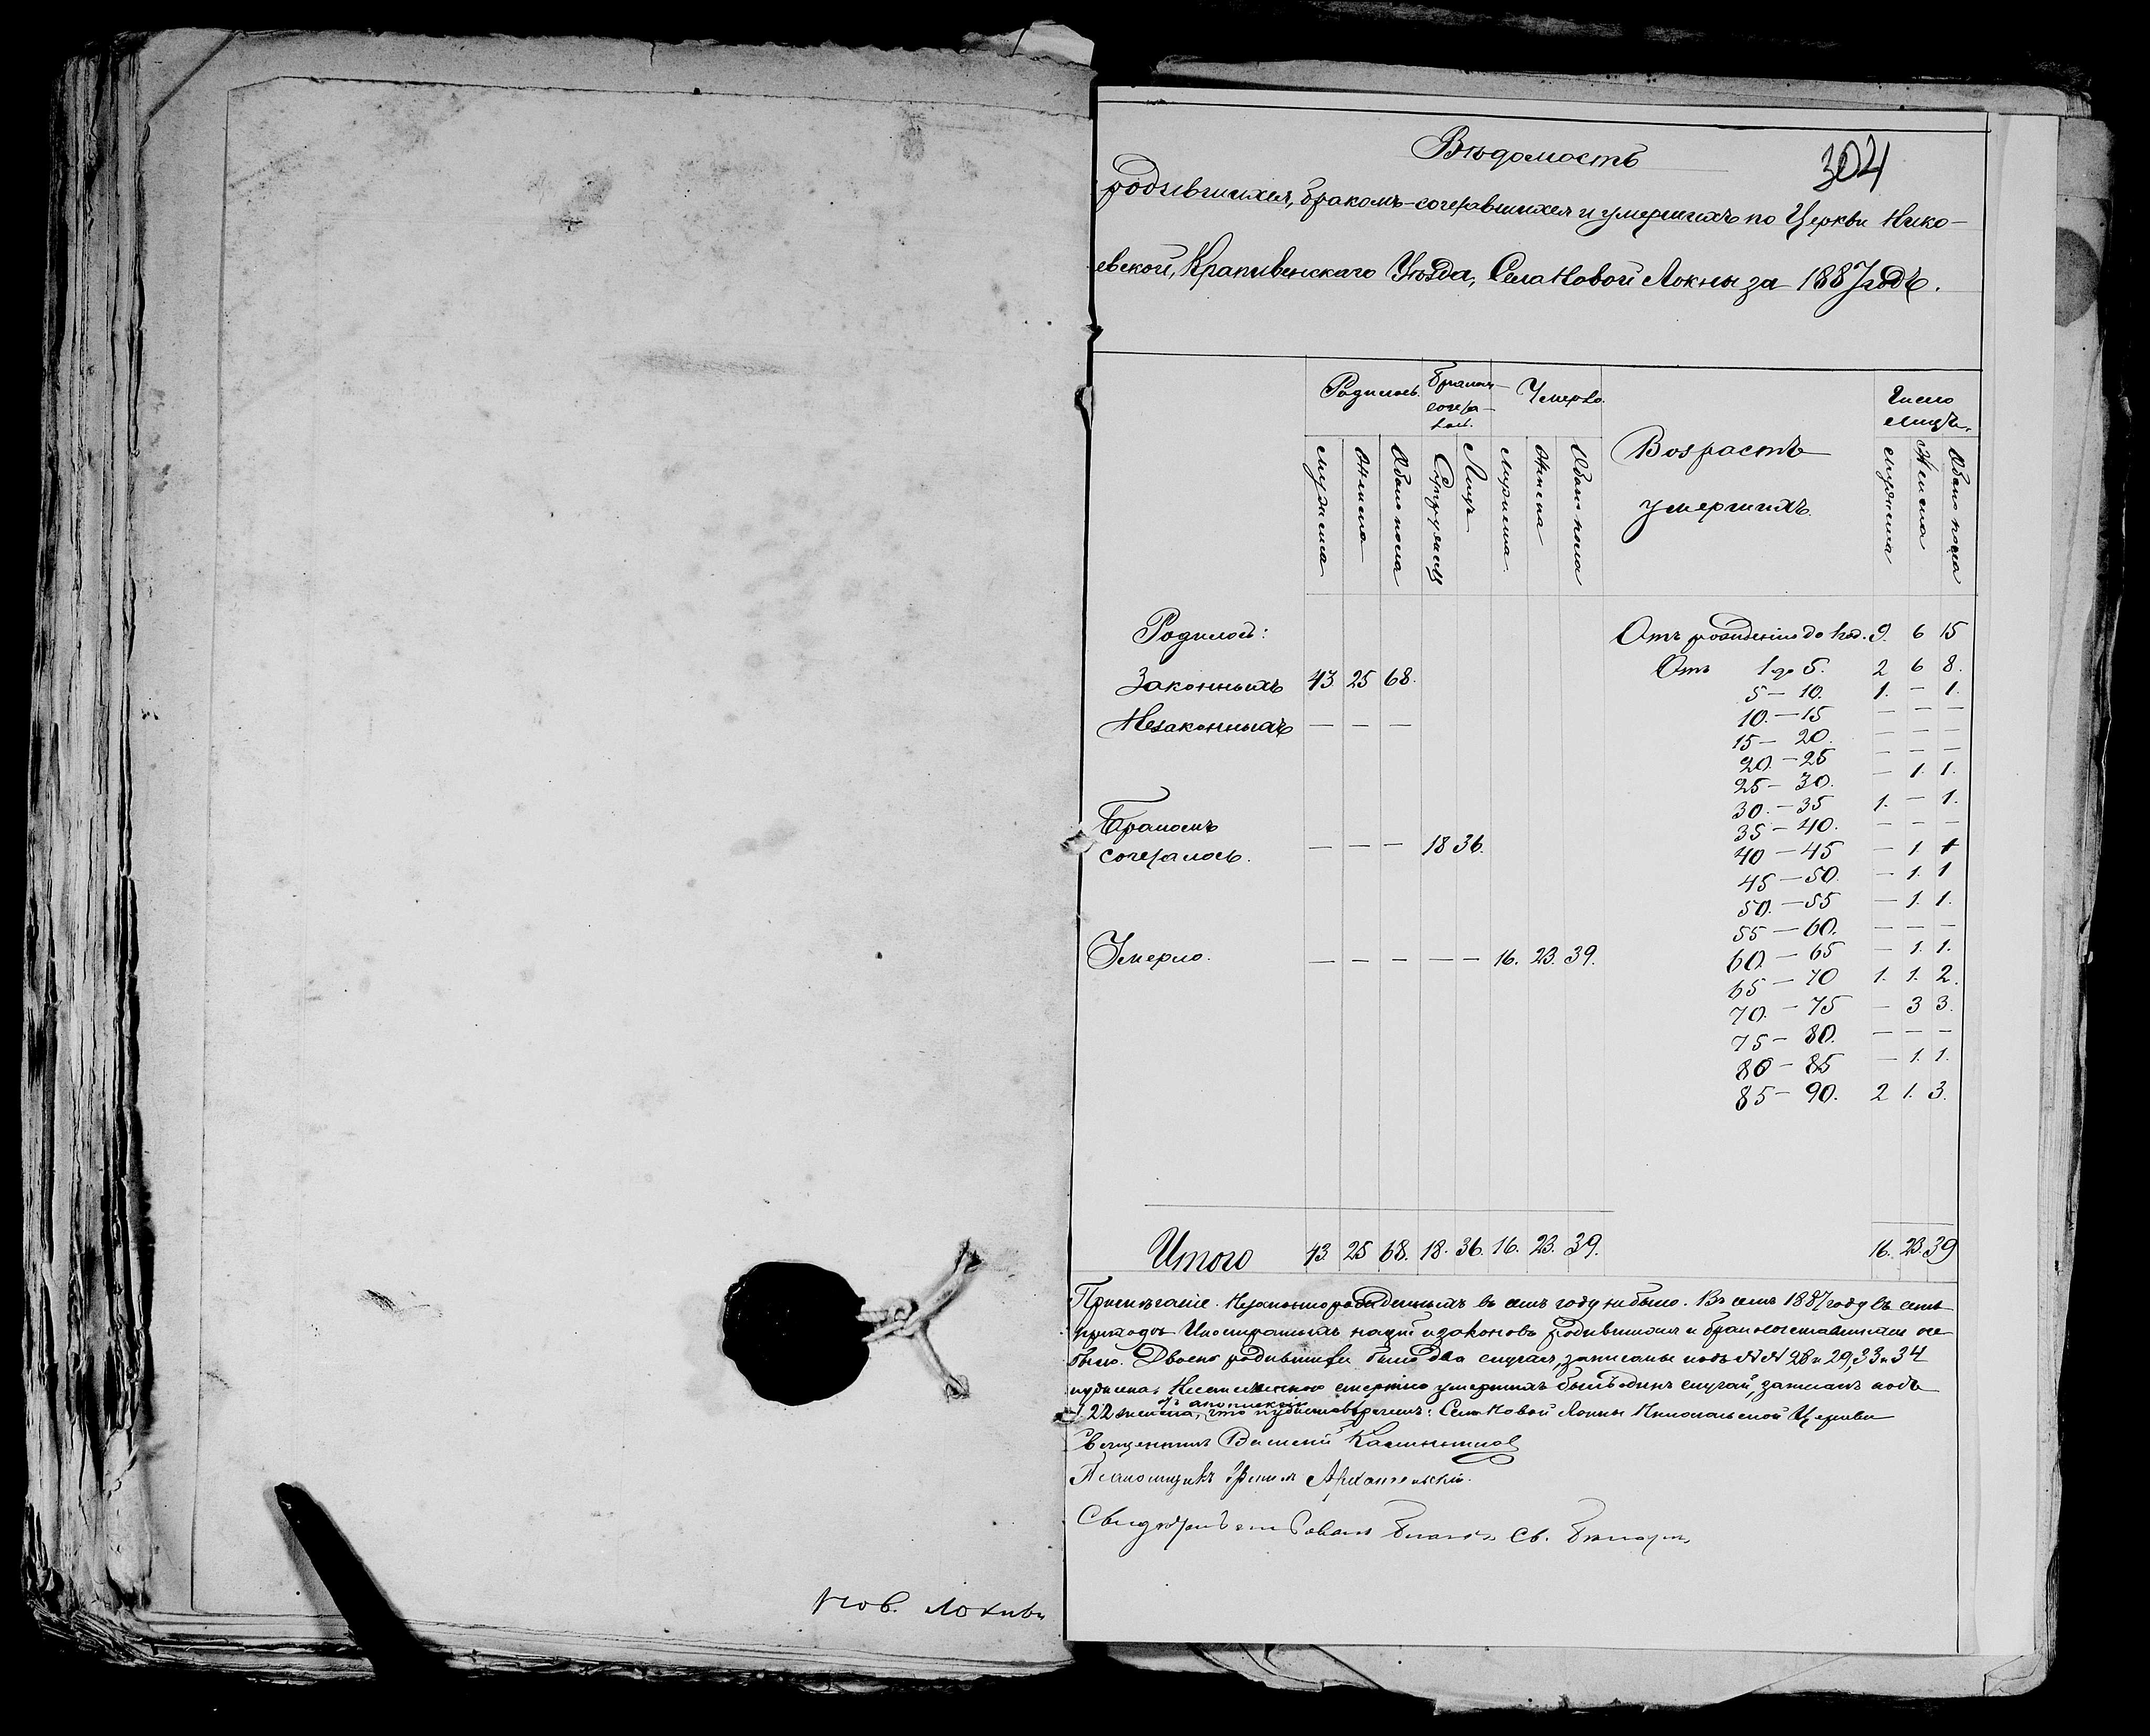 Нов. Локны
Вѣдомость
304
родившихся, бракомъ-сочетавшихся и умершихъ по Церкви Нико-
евской, Крапивенскаго Уѣзда, Села Новой Локны за 1887 годъ.
Родилось. Бракомъ сочета- лось. Умерло. Возрастъ умершихъ. Число лицъ.
мужеска женска Обоего пола Супружеств Лицъ мужеска женска Обоего пола мужеска Женска Обоего пола
Родилось: Отъ рожденія до год. 9. 6 15
Отъ 1 до 5. 2 6 8.
Законныхъ 43 25 68.
5 — 10. 1. — 1.
Незаконныхъ — — —
10. — 15 — — —
15 — 20. — — —
20. — 25 — — —
25 — 30. — 1. 1.
30. — 35 1. — 1.
35 — 40. — — —
Бракомъ
сочеталось. — — — 18 36.
40 — 45 — 1 1
45 — 50. — 1. 1
50. — 55 — 1. 1.
55 — 60. — — —
Умерло. — — — — — 16. 23. 39.
60 — 65 — 1. 1.
65 — 70 1. 1. 2.
70. — 75 — 3 3.
75 — 80. — — —
80 — 85 — 1. 1.
85 — 90. 2 1. 3.
Итого 43 25 68. 18. 36. 16. 23. 39. 16. 23. 39
Примѣчаніе. Незаконнорожденныхъ въ семъ году не было. Въ семъ 1887 году въ семъ
приходѣ Иностранныхъ націй и законовъ родившихся и бракосочетавшихся не
было. Двоень родившихся было два случая, записаны подъ №№ 28 и 29, 33 и 34
мужеска. смертію умершихъ былъ одинъ случай, записанъ подъ
22 женска, Села Новой Локны Николаевской Церкви
Священникъ Василій
Псаломщикъ Архангельскій.
Св.